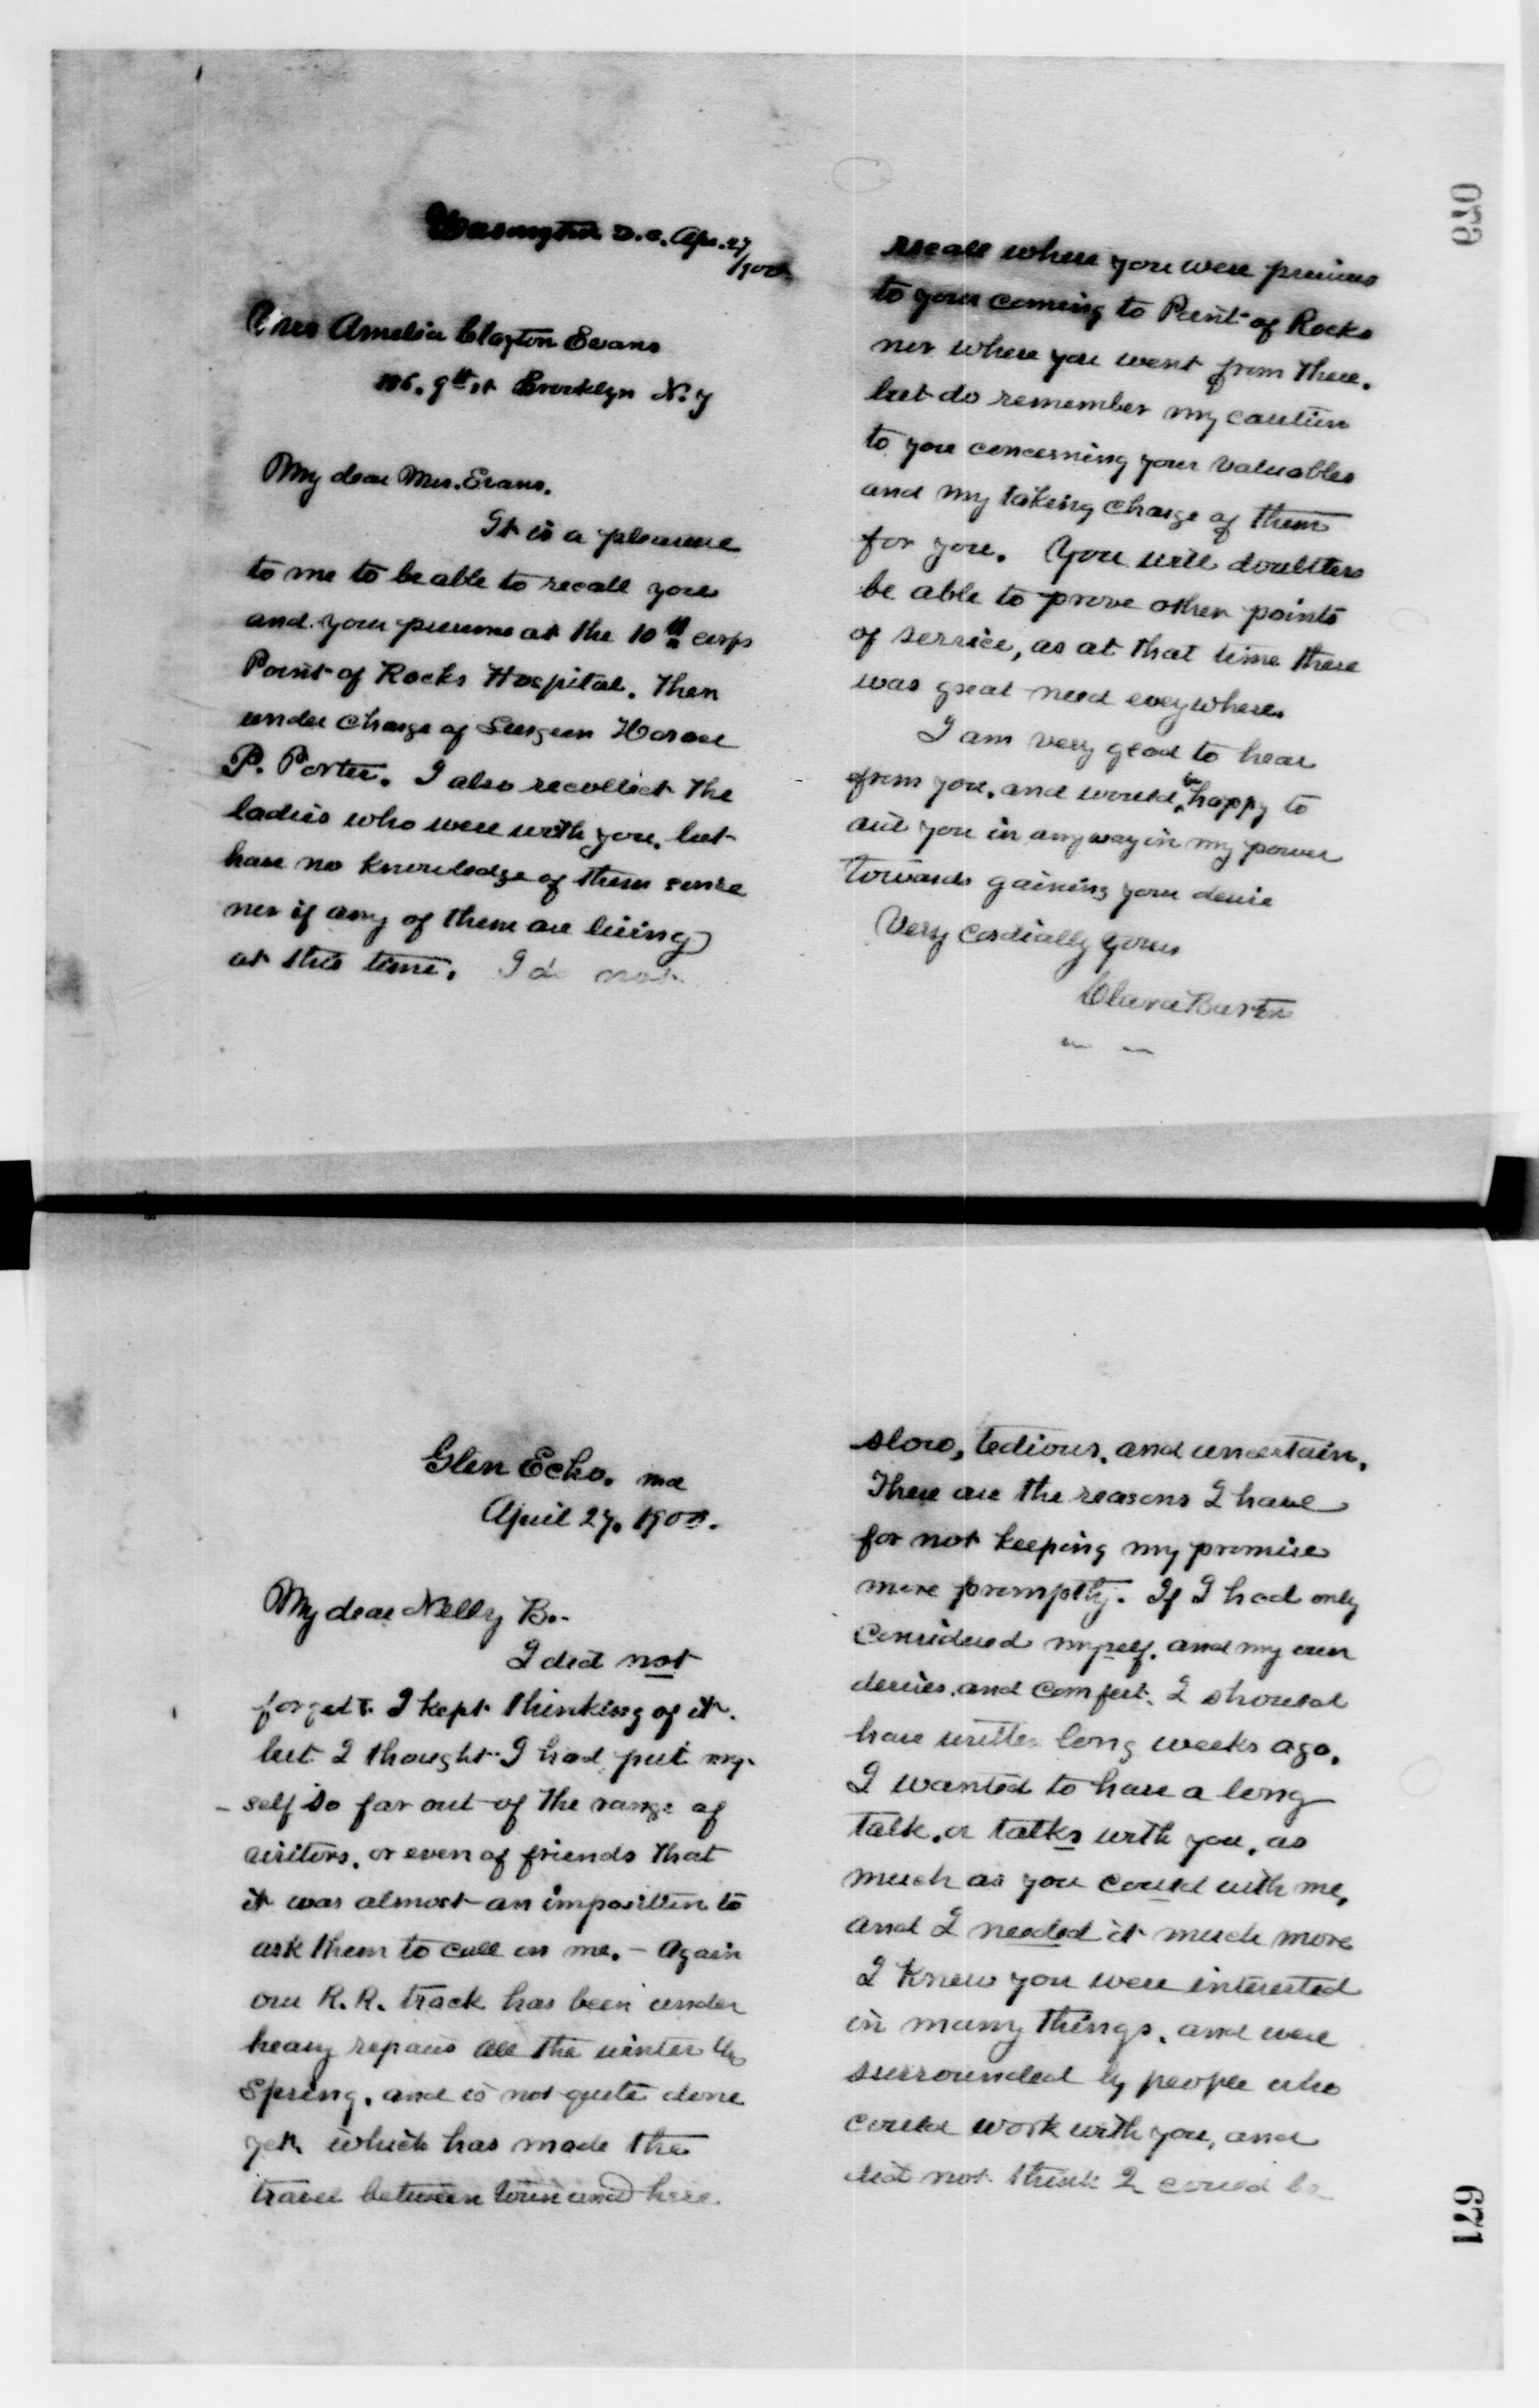 Washington D.C. Apr. 27
1900
Mrs Amelia Clayton Evans
106. 9th st Brooklyn N.Y
My dear Mrs. Evans.
It is a pleasure
to me to be able to recall you
and your presence at the 10th corps
Point of Rocks Hospital. Then
under charge of Surgeon Horace
P. Porter. I also recollect the
ladies who were with you, but
have no knowledge of them since
nor if any of them are living
at this time. I do not
recall where you were previous
to your coming to Point of Rocks
nor where you went from there.
but do remember my caution
to you concerning your valuables
and my taking charge of them
for you. You will doubtless
be able to prove other points
of service, as at that time there
was great need everywhere.
I am very glad to hear
from you, and would be happy to
aid you in any way in my power
towards gaining your desire
Very cordially yours
Clara Barton
670
Glen Echo. Md
April 27. 1900.
My dear Nelly B.-
I did not
forget. I kept thinking of it.
but I thought I had put my-
-self so far out of the range of
visitors, or even of friends that
it was almost an imposition to
ask them to call on me. - Again
our R.R. track has been under
heavy repairs all the winter &
Spring, and is not quite done
yet, which has made the
travel between town and here
slow, tedious, and uncertain.
These are the reasons I have
for not keeping my promise
more promptly. If I had only
considered myself, and my own
desires, and comfort, I should
have written long weeks ago.
I wanted to have a long
talk, or talks with you, as
much as you could with me,
and I needed it much more
I knew you were interested
in many things, and were
surrounded by people who
could work with you, and
did not think I could be
671